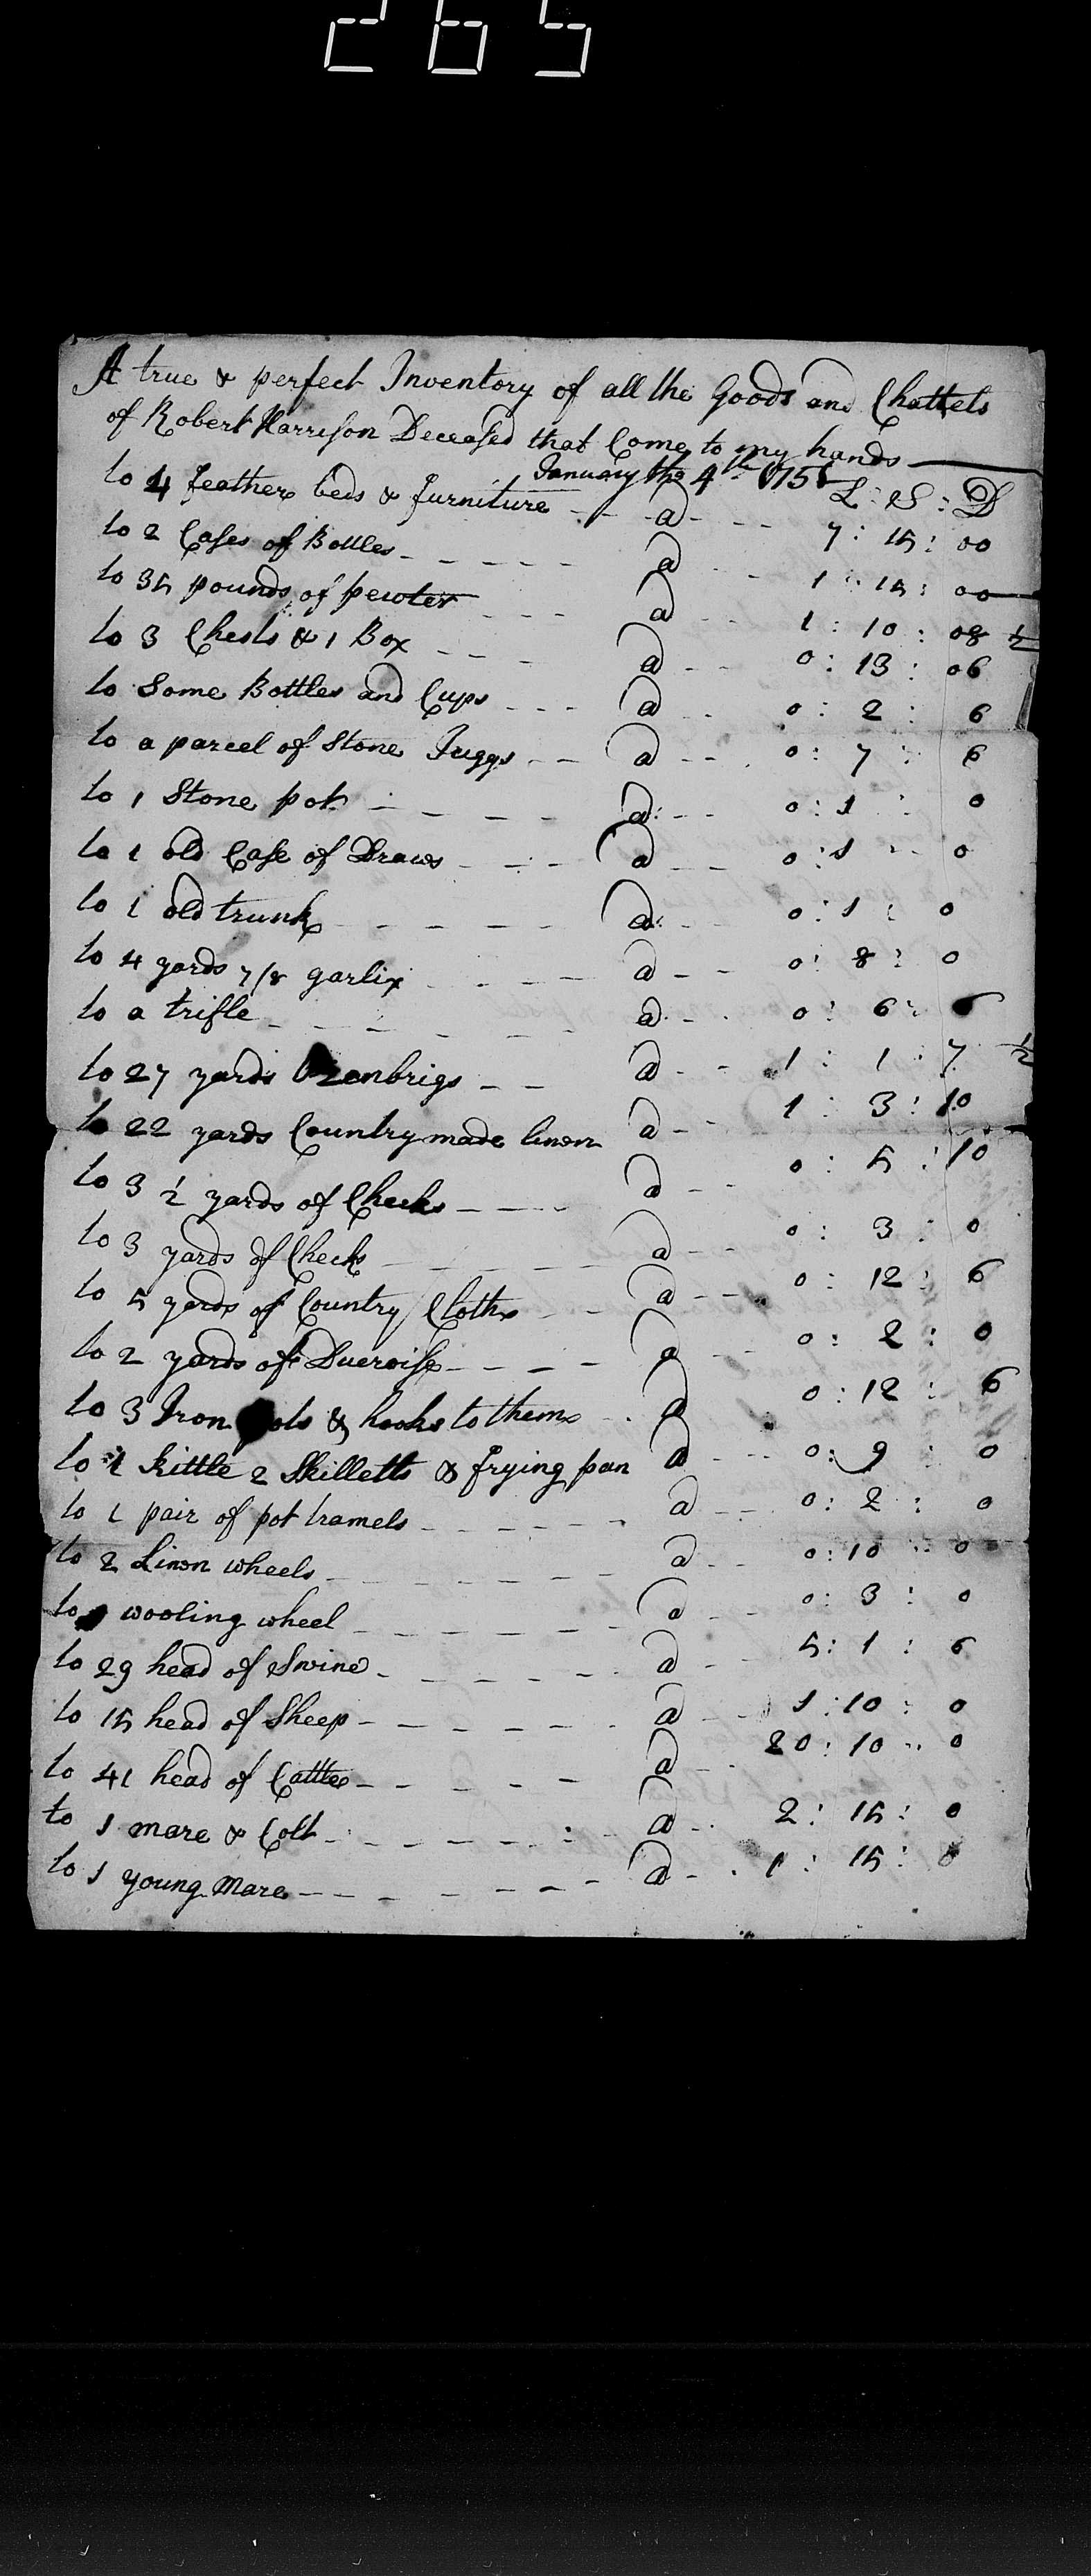 265
A true & perfect Inventory of all the Goods and Chattels
of Robert Harrison Deceased that Come to my hands
January the 4th 175
L : S : D
to 4 feather beds & furniture - - - a - - - 7 : 15 : 00
to 2 Cases of Bottles - - - - - a - - 1 : 15 : 00
to 35 pounds of pewter - - - a - - 1 : 10 : 08 ½
to 3 Chests & 1 Box - - - a - - 0 : 13 : 06
to Some Bottles and Cups - - - a - - 0 : 2 : 6
to a parcel of Stone Juggs - - a - - - 0 : 7 : 6
to 1 Stone pot - - - - a - - 0 : 1 : 0
to 1 old Case of Draws - - - a - - 0 : 1 : 0
to 1 old trunk - - - - - a - - 0 : 1 : 0
to 4 yards 7/8 garlix - - - - a - - 0 : 8 : 0
to a trifle - - - - - a - - 0 : 6 : 6
to 27 yards Ozenbrigs - - a - - 1 : 1 : 7 ½
to 22 yards Country made linen a - - 1 : 3 : 10
to 3 ½ yards of Checks - - - - a - - 0 : 5 : 10
to 3 yards of Check - - - - - a - - 0 : 3 : 0
to 5 yards of Country Cloth - - a - - - 0 : 12 : 6
to 2 yards of - - - - a - - 0 : 2 : 0
to 3 Iron pots & hooks to them - - a - - 0 : 12 : 6
to 1 kittle 2 Skilletts & frying pan a - - - 0 : 9 : 0
to 1 pair of pot tramels - - - - - - a - - 0 : 2 : 0
to 2 Linon wheels - - - - - - a - - 0 : 10 : 0
to wooling wheel - - - - - - a - - 0 : 3 : 0
to 29 head of Swine - - - - - - a - - 5 : 1 : 6
to 15 head of Sheep - - - - - - a - - 1 : 10 : 0
to 41 head of Cattle - - - - - a - - 20 : 10 : 0
to 1 mare & Colt - - - - - - : - a - - 2 : 15 : 0
to 1 young Mare - - - - - - - a - - 1 : 15 : 0